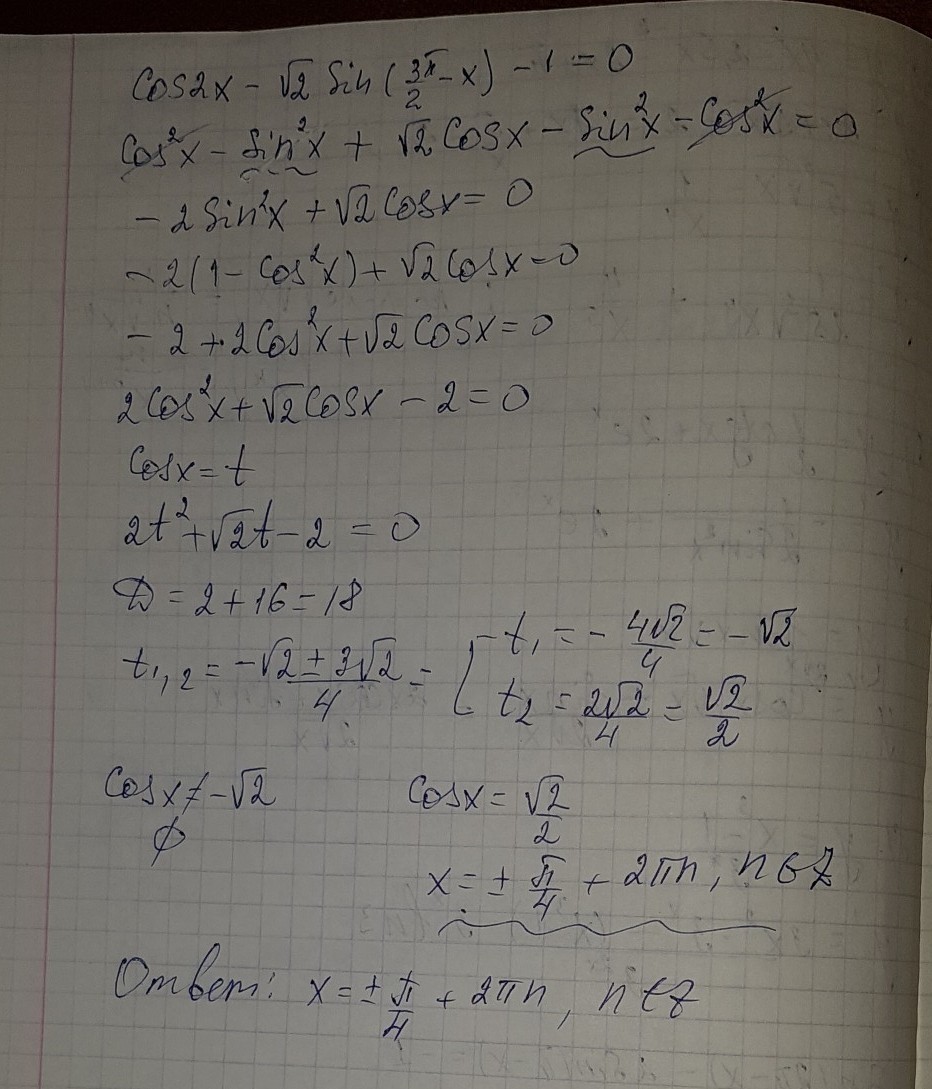 cos2x - √2 sin(3π/2 - x) - 1 = 0
cos²x - sin²x + √2 cosx - sin²x - cos²x = 0
- 2 sin²x + √2 cosx = 0
- 2(1 - cos²x) + √2 cosx = 0
- 2 + 2cos²x + √2 cosx = 0
2cos²x + √2 cosx - 2 = 0
cosx = t
2t² + √2t - 2 = 0
D = 2 + 16 = 18
t₁,₂ = (-√2 ± 3√2)/4 = [ t₁ = - 4√2/4 = - √2
t₂ = 2√2/4 = √2/2
cosx ≠ -√2 cosx = √2/2
∅ x = ± π/4 + 2πn, n∈Z
Ответ: x = ± π/4 + 2πn, n∈Z